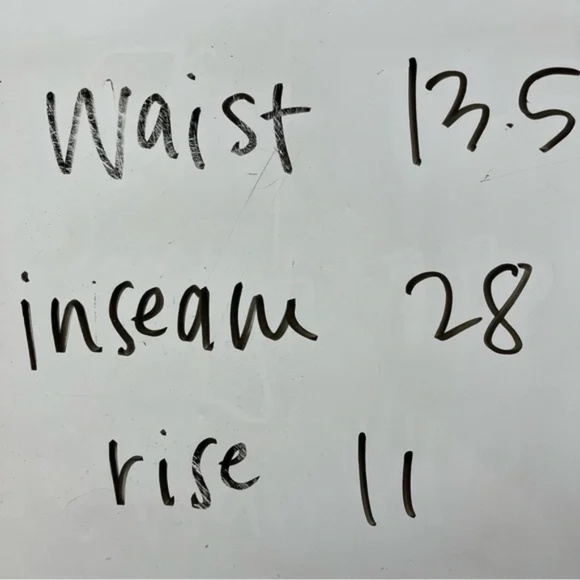 Waist 13.5
inseam 28
rise 11